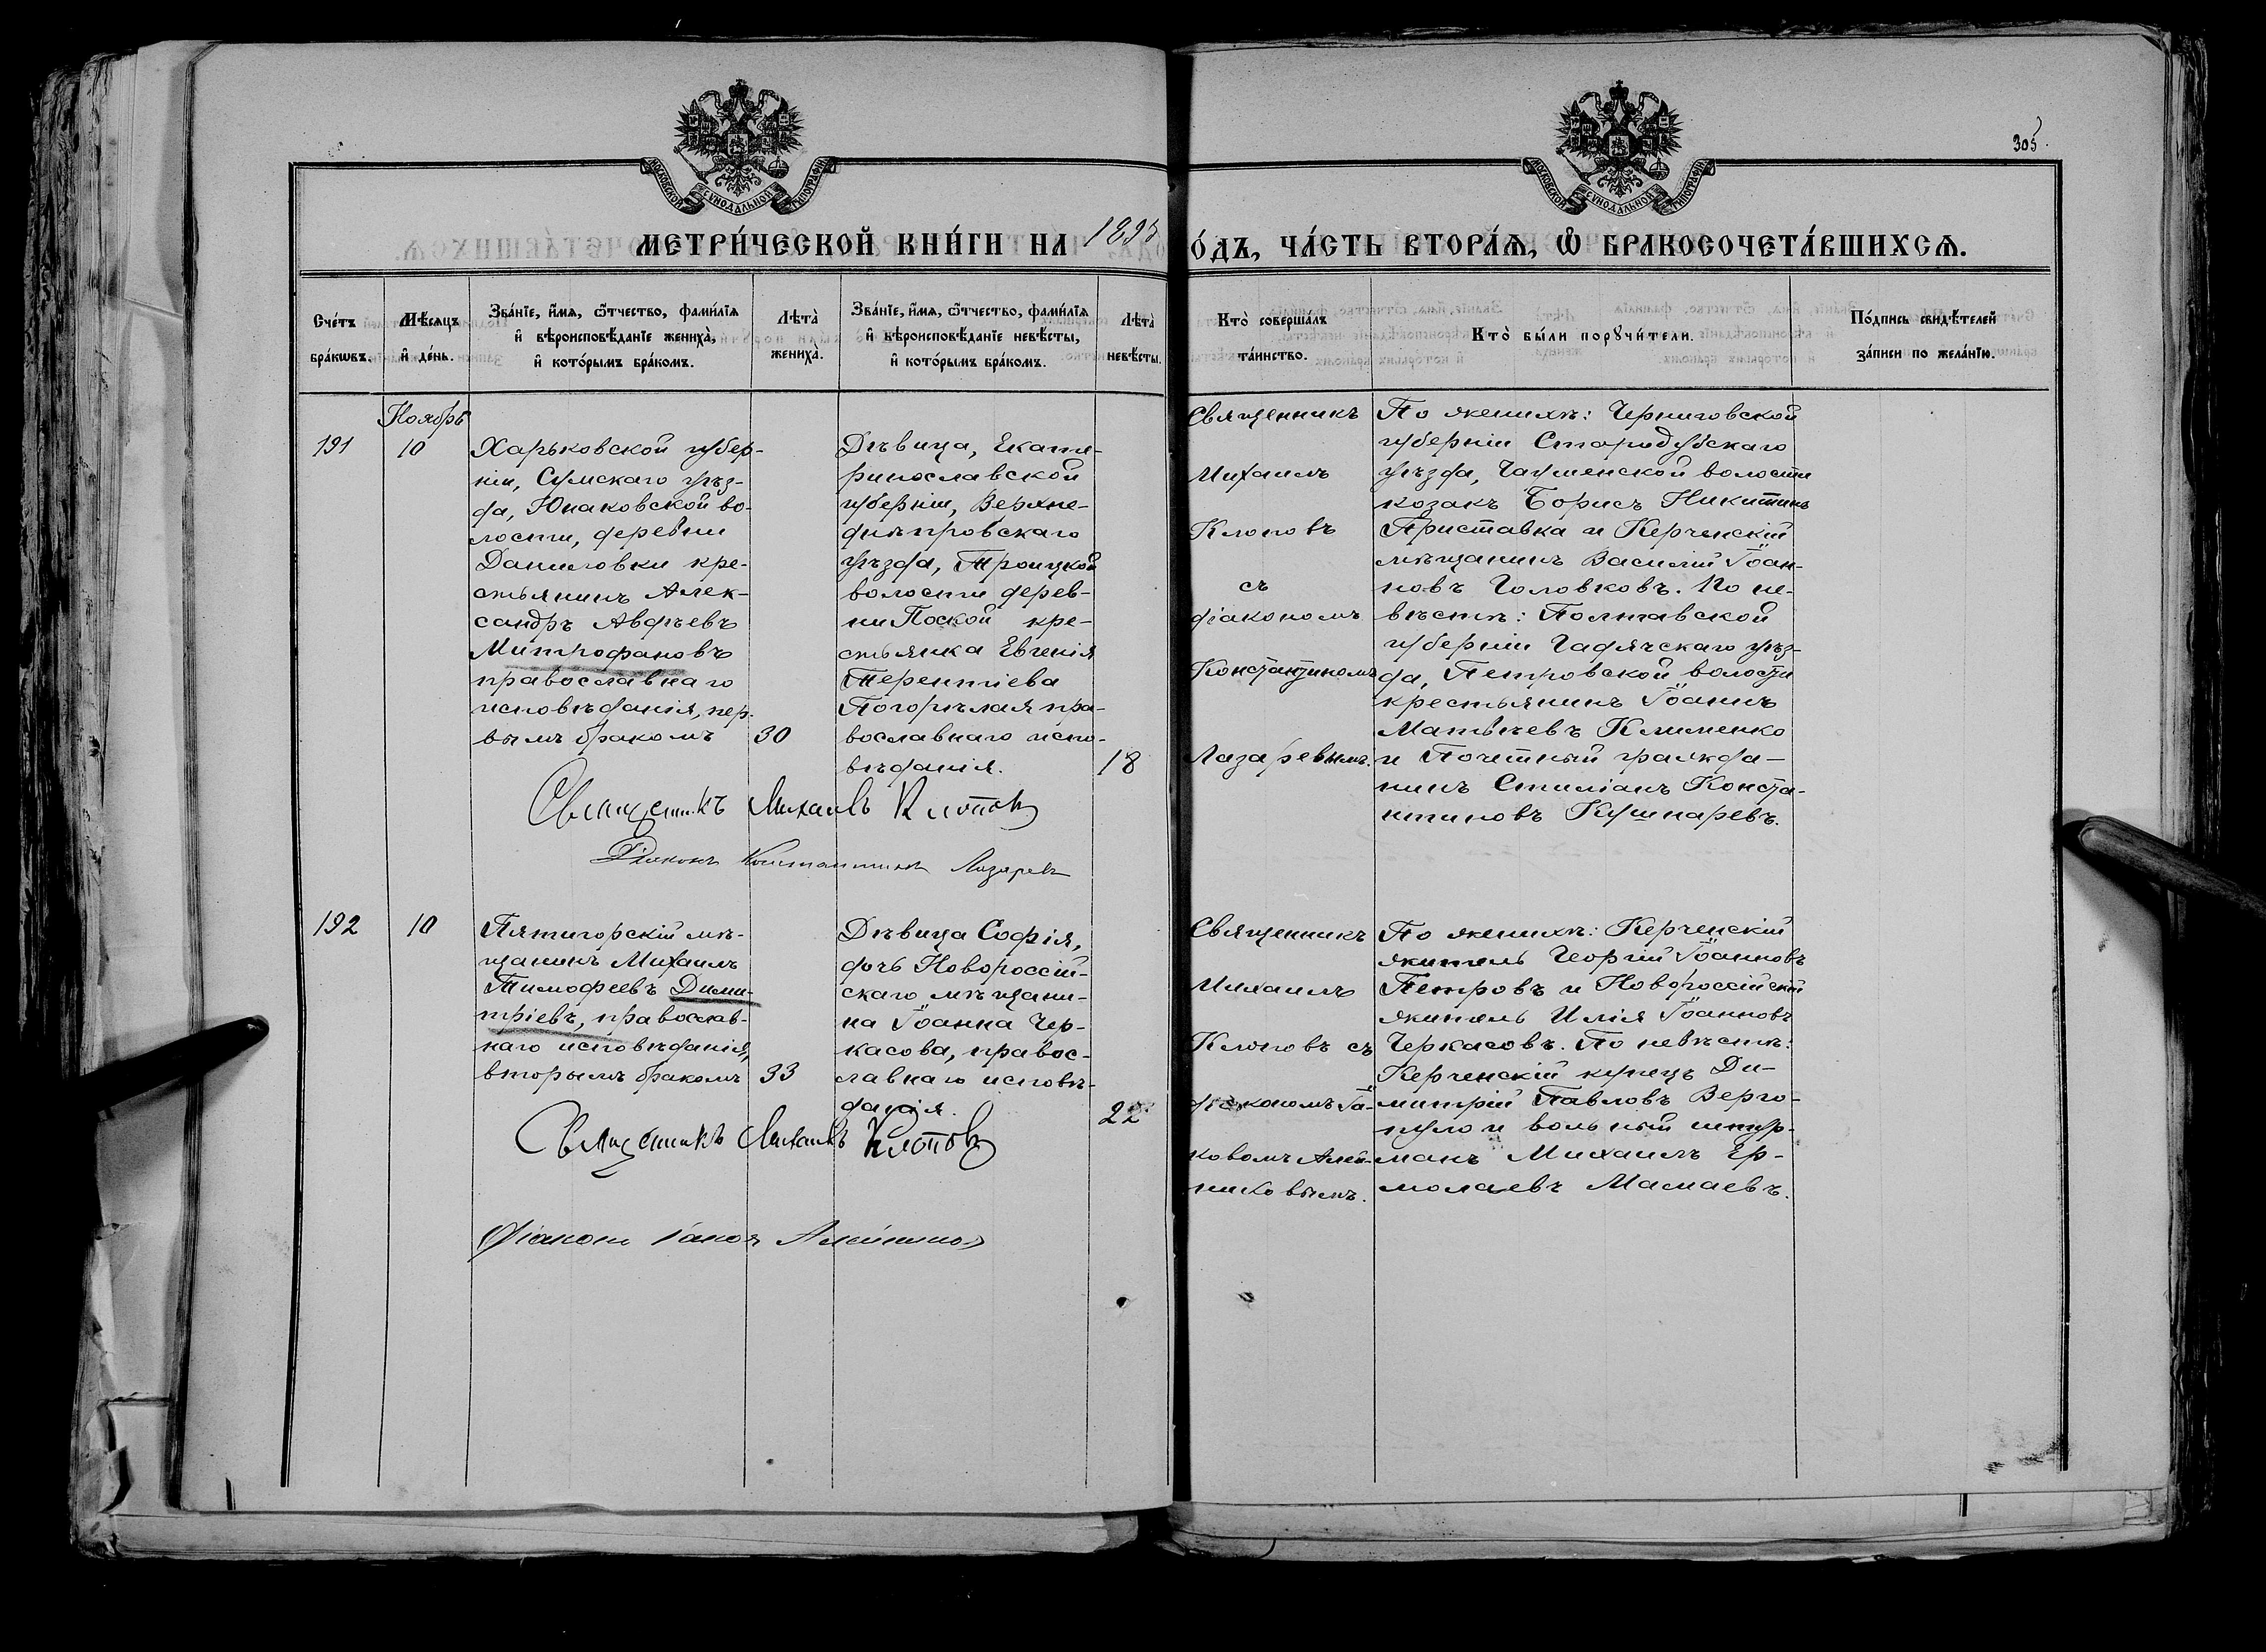 305
МОСКОВСКОЙ СѴНОДАЛЬНОЙ ТИПОГРАФІИ
МОСКОВСКОЙ СѴНОДАЛЬНОЙ ТИПОГРАФІИ
МЕТРИ́ЧЕСКОЙ КНИ́ГИ НА 1895
О́ДЪ, ЧА́СТЬ ВТОРА́Ѧ, Ѡ БРАКОСОЧЕТА́ВШИХСѦ.
Сче́тъ
бра́кѡвъ.
Мѣ́сяцъ
и҆ де́нь.
Зва́нїе, и҆́мѧ, ѻ҆́тчество, фами́лїѧ
и҆ вѣроисповѣ́данїе жениха̀,
и҆ кото́рымъ бра́комъ.
Лѣта̀
жениха̀.
Зва́нїе, и҆́мѧ, ѻ҆́тчество, фами́лїѧ
и҆ вѣроисповѣ́данїе невѣ́сты,
и҆ кото́рымъ бра́комъ.
Лѣта̀
невѣ́сты.
Кто̀ соверша́лъ
та́инство.
Кто̀ бы́ли порꙋчи́тели.
По́дпись свидѣ́телей
за́писи по жела́нїю.
Ноябрь
191
10
Харьковской губер-
ніи, Сумскаго уѣз-
да, Юнаковской во-
лости, деревни
Даниловки кре-
стьянинъ Алек-
сандръ Авдѣевъ
Митрофановъ
православнаго
исповѣданія, пер-
вымъ бракомъ
30
Дѣвица, Екате-
ринославской
губерніи, Верхне-
днѣпровскаго
уѣзда, Троицкой
волости дерев-
ни Поской кре-
стьянка Евгенія
Терентіева
Погорѣлая пра-
вославнаго испо-
вѣданія.
18
Священникъ
Михаилъ
Клоповъ
съ
діакономъ
Константиномъ
Лазаревымъ.
По женихѣ: Черниговской
губерніи Стародубскаго
уѣзда, волости
козакъ Борисъ Никитинъ
Приставка и Керченскій
мѣщанинъ Василій Іоан-
новъ Головковъ. По не-
вѣстѣ: Полтавской
губерніи Гадячскаго уѣз-
да, Петровской волости
крестьянинъ Іоаннъ
Матѳеевъ Клименко
и Почетный гражда-
нинъ Стиліанъ Конста-
нтиновъ Кушнаревъ.
Священникъ Михаилъ Клоповъ
Діаконъ Константинъ Лазаревъ
192
10
Пятигорскій мѣ-
щанинъ Михаилъ
Тимофеевъ Дими-
тріевъ, православ-
наго исповѣданія,
вторымъ бракомъ
33
Дѣвица Софія,
дочь Новороссій-
скаго мѣщани-
на Іоанна Чер-
касова, правос-
лавнаго исповѣ-
данія.
22
Священникъ
Михаилъ
Клоповъ съ
діакономъ Іа-
ковомъ Алей-
никовымъ.
По женихѣ: Керченскій
житель Георгій Іоанновъ
Петровъ и Новороссійскій
житель Илія Іоанновъ
Черкасовъ. По невѣстѣ:
Керченскій купецъ Ди-
митрій Павловъ Верго-
пуло и вольный штур-
манъ Михаилъ Ер-
молаевъ Мамаевъ.
Священникъ Михаилъ Клоповъ
Діаконъ Іаковъ Алейниковъ